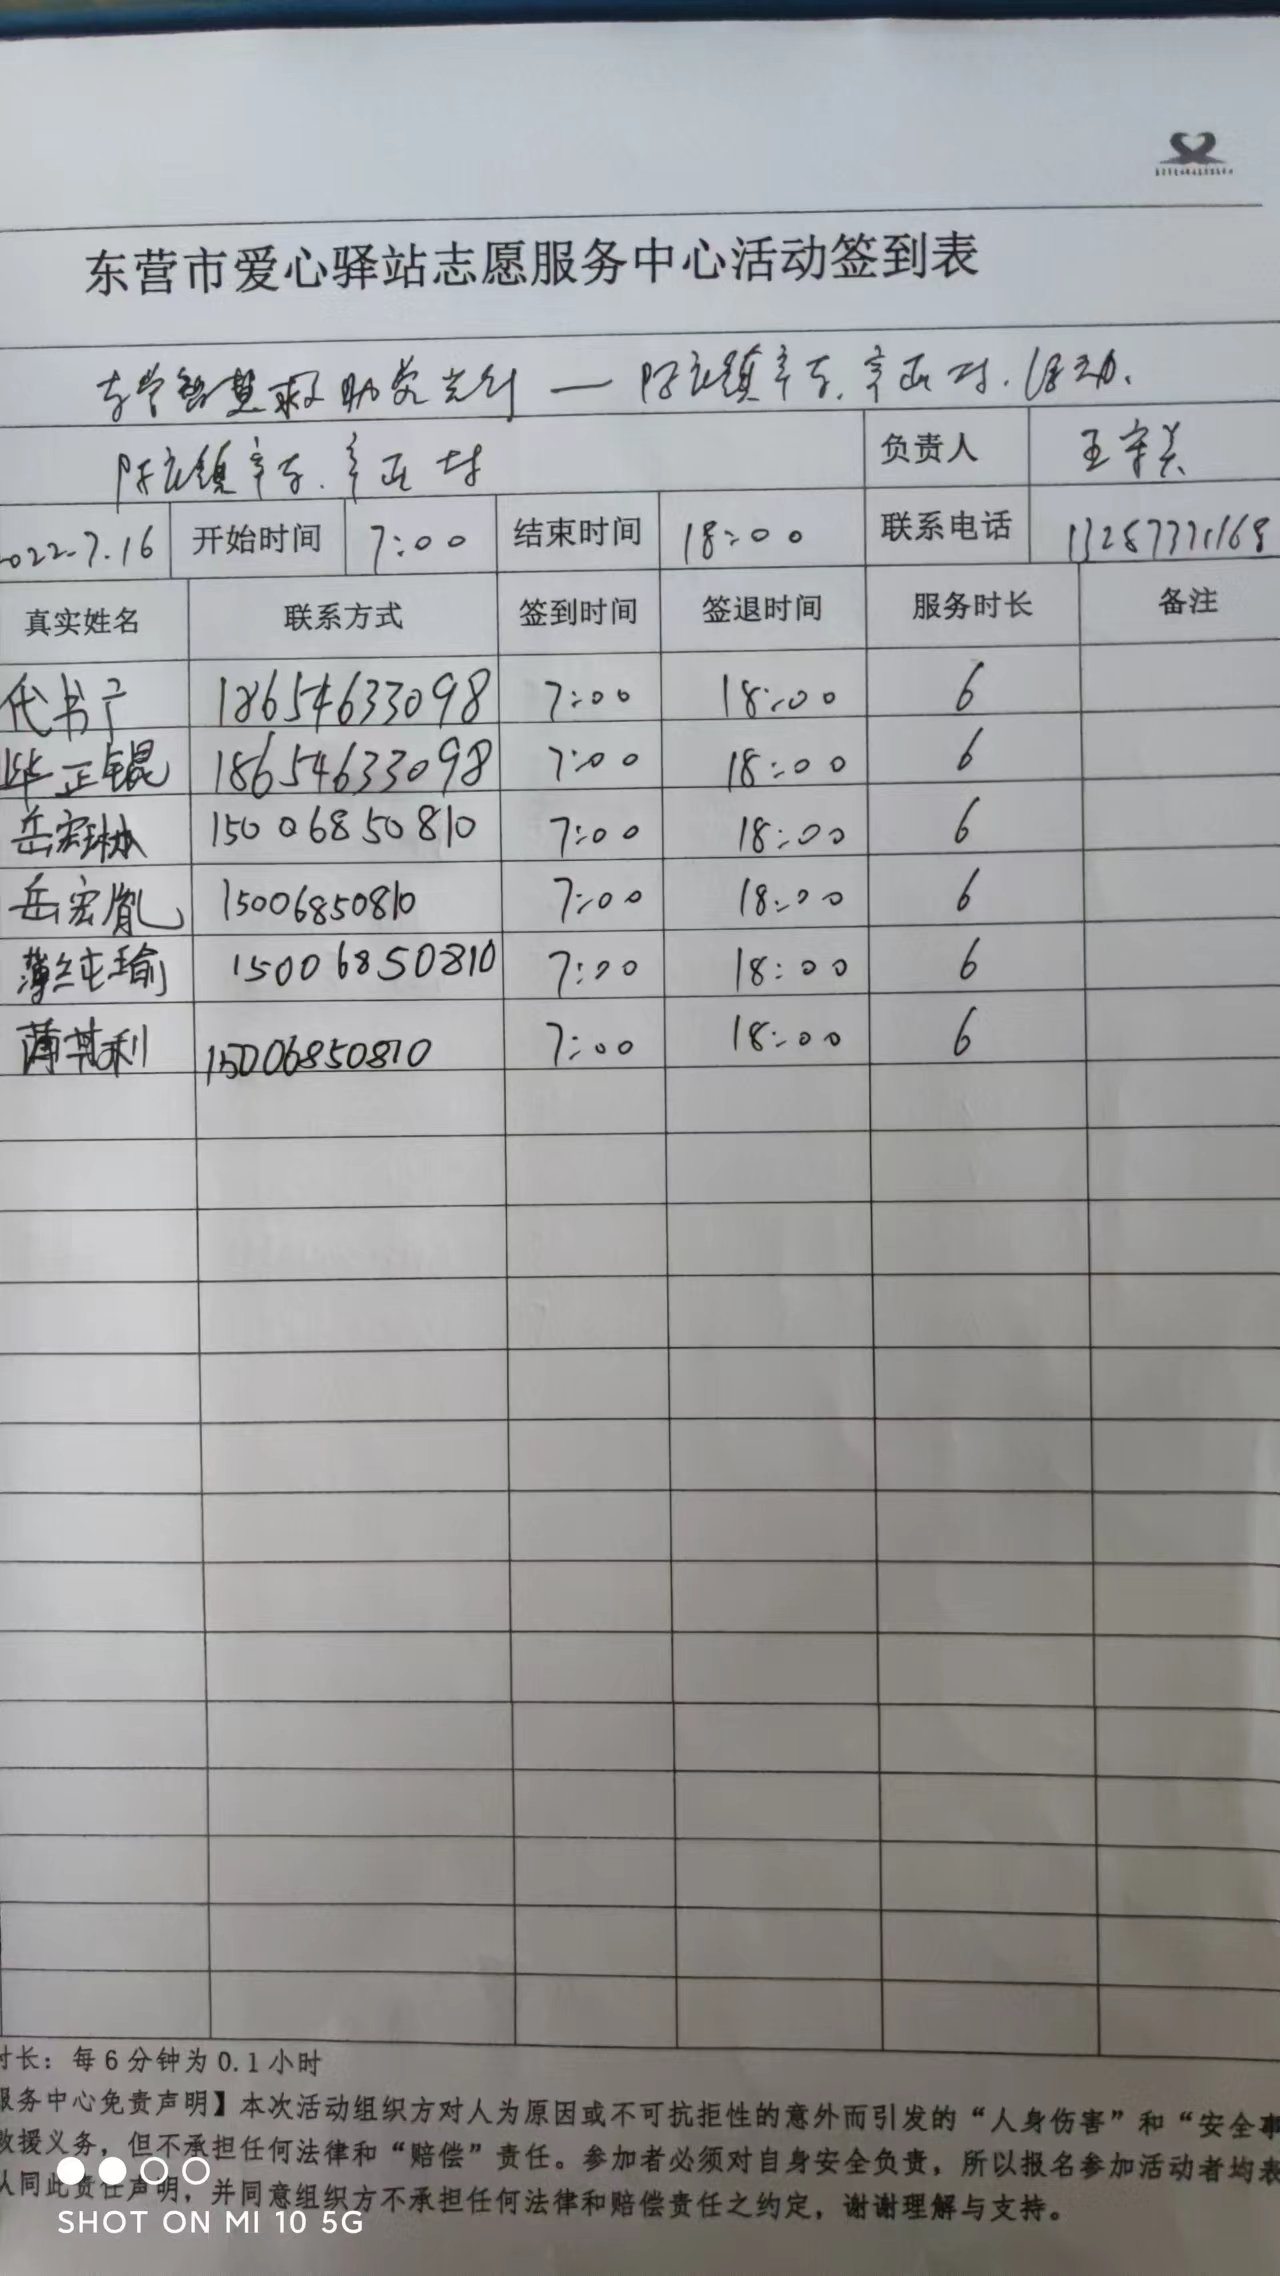 东营市爱心驿站志愿服务中心活动签到表
东营智慧救助 — 镇辛东.辛西村.活动.
镇辛东.辛西村 负责人 王守
2022.7.16 开始时间 7:00 结束时间 18:00 联系电话
真实姓名 联系方式 签到时间 签退时间 服务时长 备注
代书宁 18654633098 7:00 18:00 6
毕正锟 18654633098 7:00 18:00 6
岳宏琳 15006850810 7:00 18:00 6
岳宏胤 15006850810 7:00 18:00 6
薄纯瑜 15006850810 7:00 18:00 6
薄其利 15006850810 7:00 18:00 6
时长：每6分钟为0.1小时
服务中心免责声明】本次活动组织方对人为原因或不可抗拒性的意外而引发的“人身伤害”和“安全事
救援义务，但不承担任何法律和“赔偿”责任。参加者必须对自身安全负责，所以报名参加活动者均表
认同此责任声明，并同意组织方不承担任何法律和赔偿责任之约定，谢谢理解与支持。
SHOT ON MI 10 5G